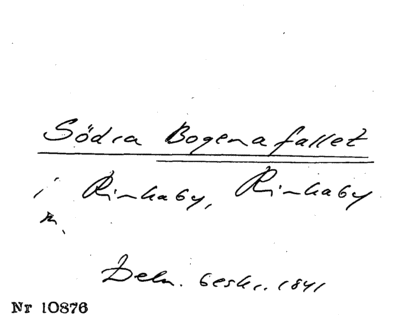 Södra Bogenafallet
i Rinkaby, Rinkaby
sn.
Deln. beskr. 1841
Nr 10876